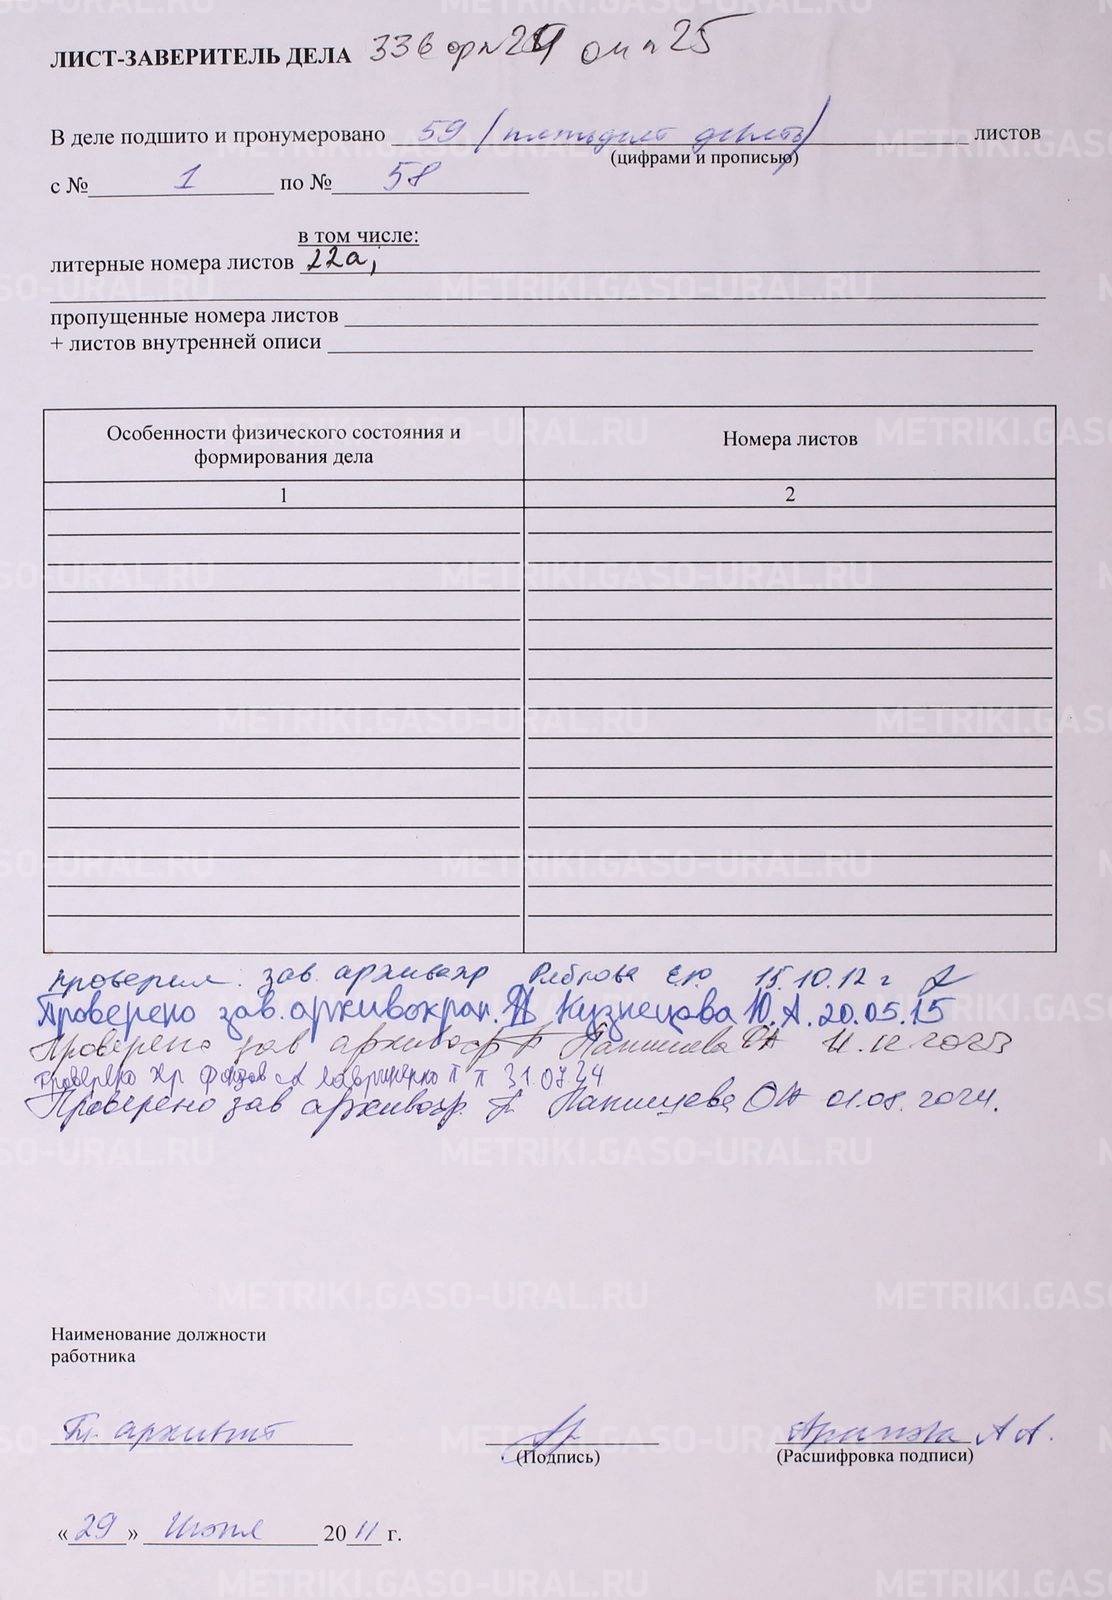 ЛИСТ-ЗАВЕРИТЕЛЬ ДЕЛА 336 оп 25
В деле подшито и пронумеровано 59 (пятьдесят девять) листов
(цифрами и прописью)
с № 1 по № 58
в том числе:
литерные номера листов 22а;
пропущенные номера листов
+ листов внутренней описи
Особенности физического состояния и формирования дела
Номера листов
1 2
Проверил зав. архивохр Е.Ю. 15.10.12 г
Проверено зав. архивохран. Кузнецова Ю.А. 20.05.15
Проверено зав архивохр
Проверено хр фондов Лавриненко 31.07.24
Проверено зав архивохр. 01.08.2024.
Наименование должности
работника
Гл. архивист А А.
(Подпись) (Расшифровка подписи)
«29» 2011 г.
METRIKI.GASO-URAL.RU